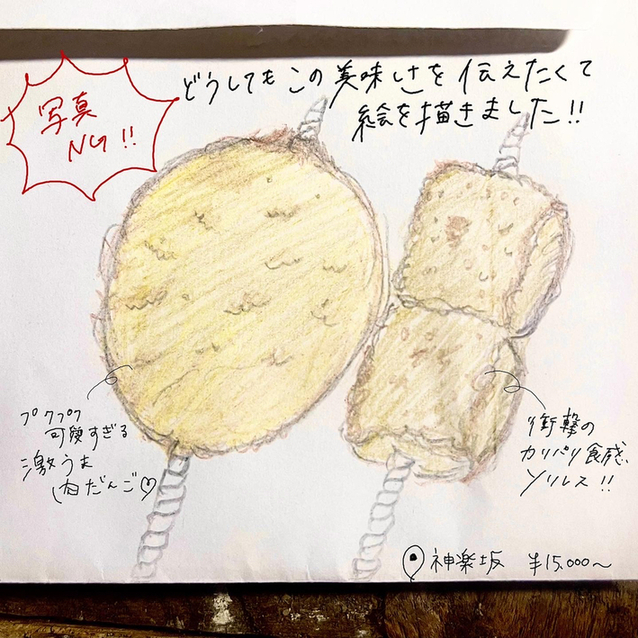 写真
NG!!
どうしてもこの美味しさを伝えたくて
絵を描きました!!
プクプク
可愛すぎる
激うま
肉だんご♡
衝撃の
カリパリ食感、
ソリレス!!
神楽坂 ¥15,000〜